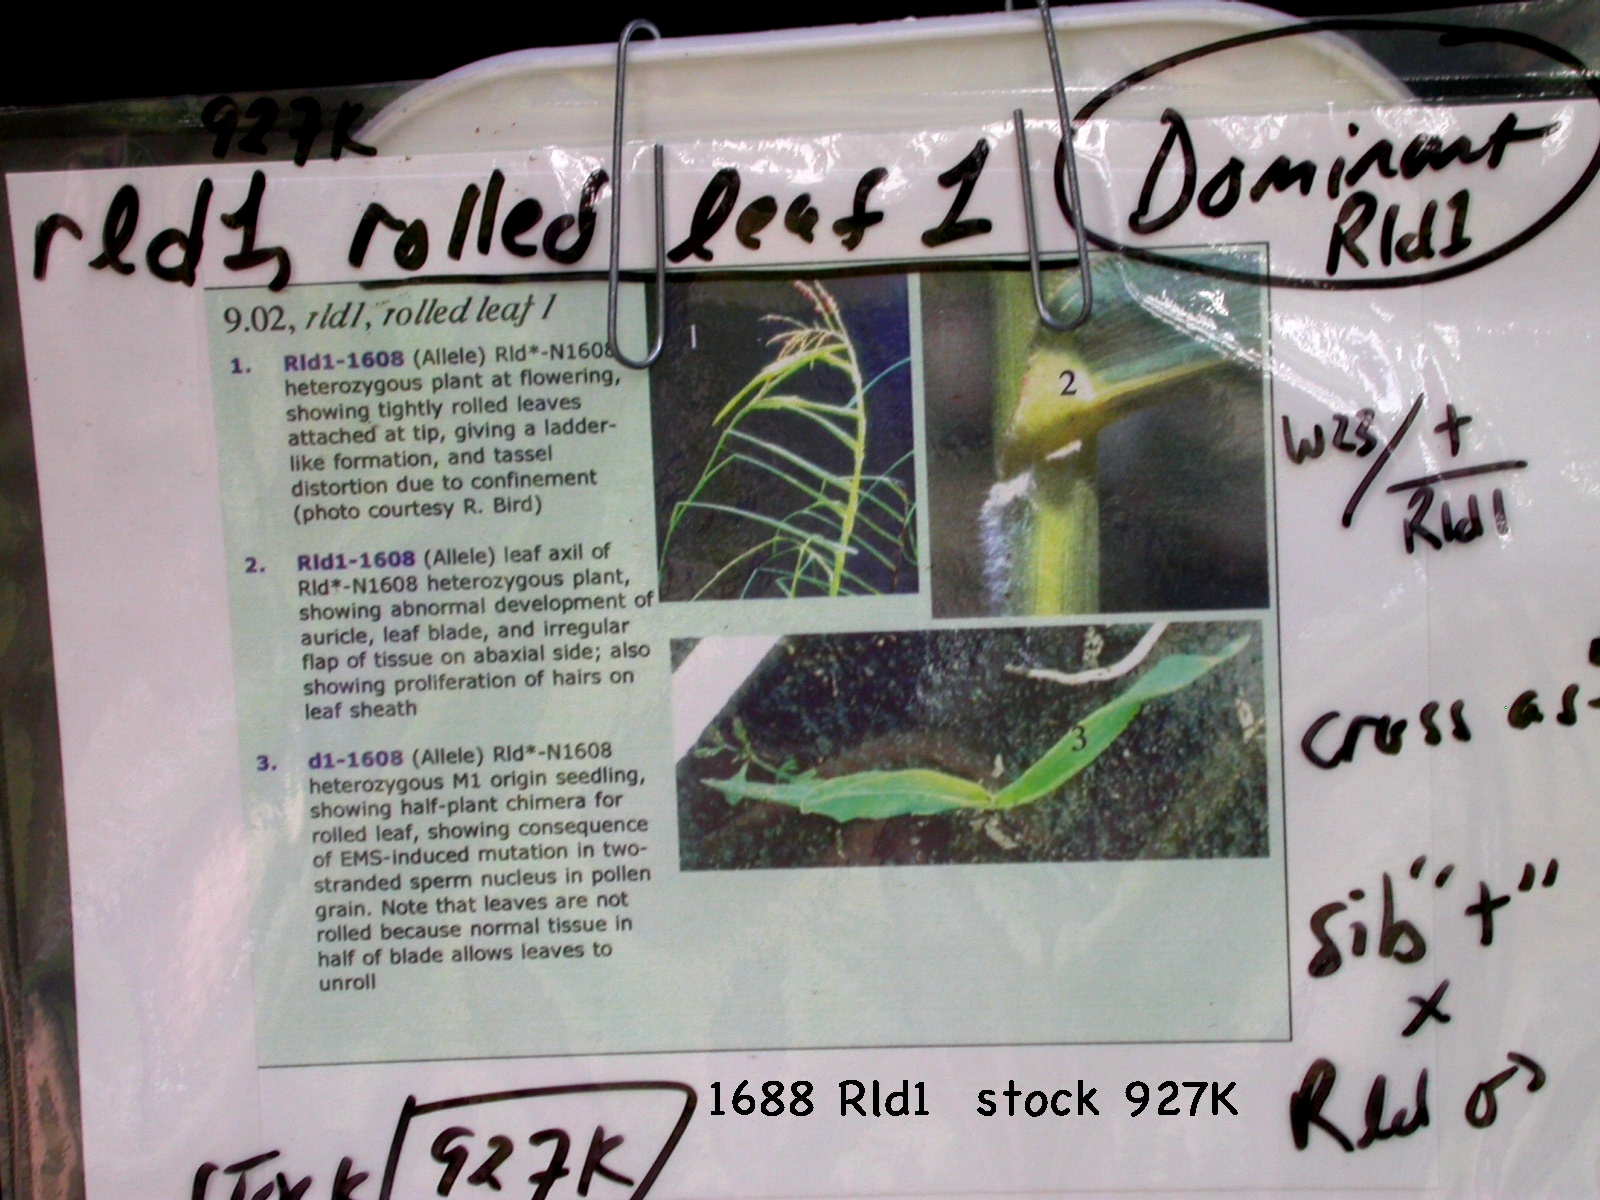 927K
rld1, rolled leaf 1
Dominant
Rld1
9.02, rld1, rolled leaf 1
1. Rld1-1608 (Allele) Rld*-N1608
heterozygous plant at flowering,
showing tightly rolled leaves
attached at tip, giving a ladder-
like formation, and tassel
distortion due to confinement
(photo courtesy R. Bird)
2. Rld1-1608 (Allele) leaf axil of
Rld*-N1608 heterozygous plant,
showing abnormal development of
auricle, leaf blade, and irregular
flap of tissue on abaxial side; also
showing proliferation of hairs on
leaf sheath
3. d1-1608 (Allele) Rld*-N1608
heterozygous M1 origin seedling,
showing half-plant chimera for
rolled leaf, showing consequence
of EMS-induced mutation in two-
stranded sperm nucleus in pollen
grain. Note that leaves are not
rolled because normal tissue in
half of blade allows leaves to
unroll
1
2
3
W23/+
Rld1
cross as
sib "+"
x
Rld ♂
1688 Rld1 stock 927K
Stock 927K